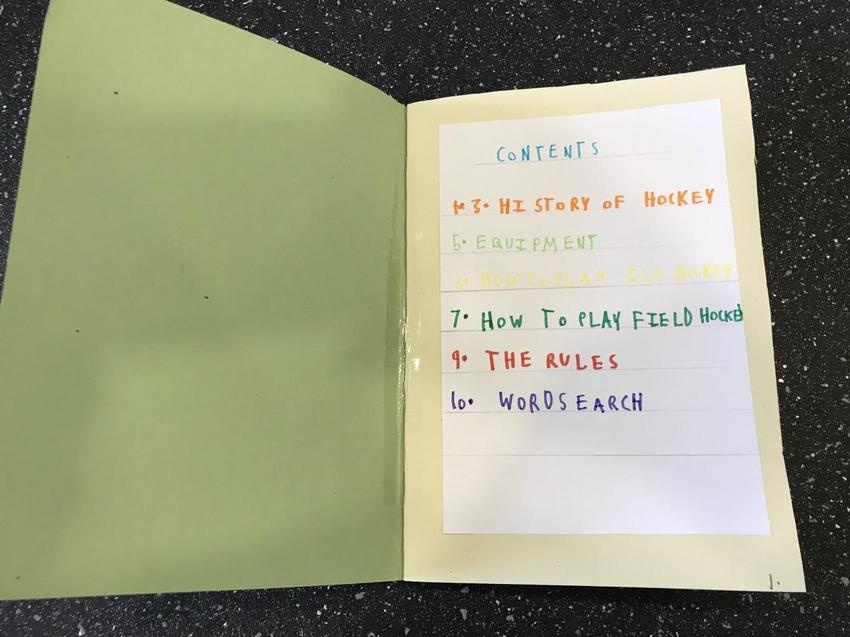 CONTENTS
3. HISTORY OF HOCKEY
5. EQUIPMENT
6. HOW TO PLAY ICE HOCKEY
7. HOW TO PLAY FIELD HOCKE
9. THE RULES
10. WORDSEARCH
1.